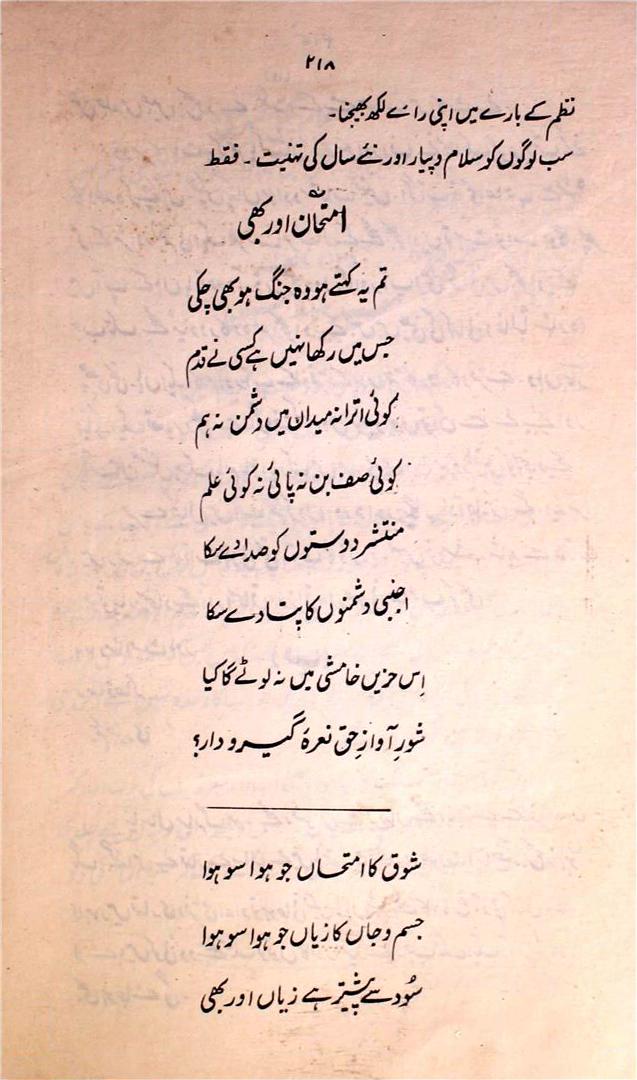 ۲۱۸
نظم کے بارے میں اپنی رائے لکھ بھیجنا۔
سب لوگوں کو سلام و پیار اور نئے سال کی تہنیت۔ فقط
امتحان اور بھی
تم یہ کہتے ہو وہ جنگ ہو بھی چکی
جس میں رکھا نہیں ہے کسی نے قدم
کوئی اترا نہ میدان میں دشمن نہ ہم
کوئی صف بن نہ پائی نہ کوئی علم
منتشر دوستوں کو صدا دے سکا
اجنبی دشمنوں کا پتا دے سکا
اِس حزیں خامشی میں نہ لوٹے گا کیا
شورِ آوازِ حق نعرۂ گیر و دار؟
شوق کا امتحاں جو ہوا سو ہوا
جسم و جاں کا زیاں جو ہوا سو ہوا
سُود سے پیشتر ہے زیاں اور بھی